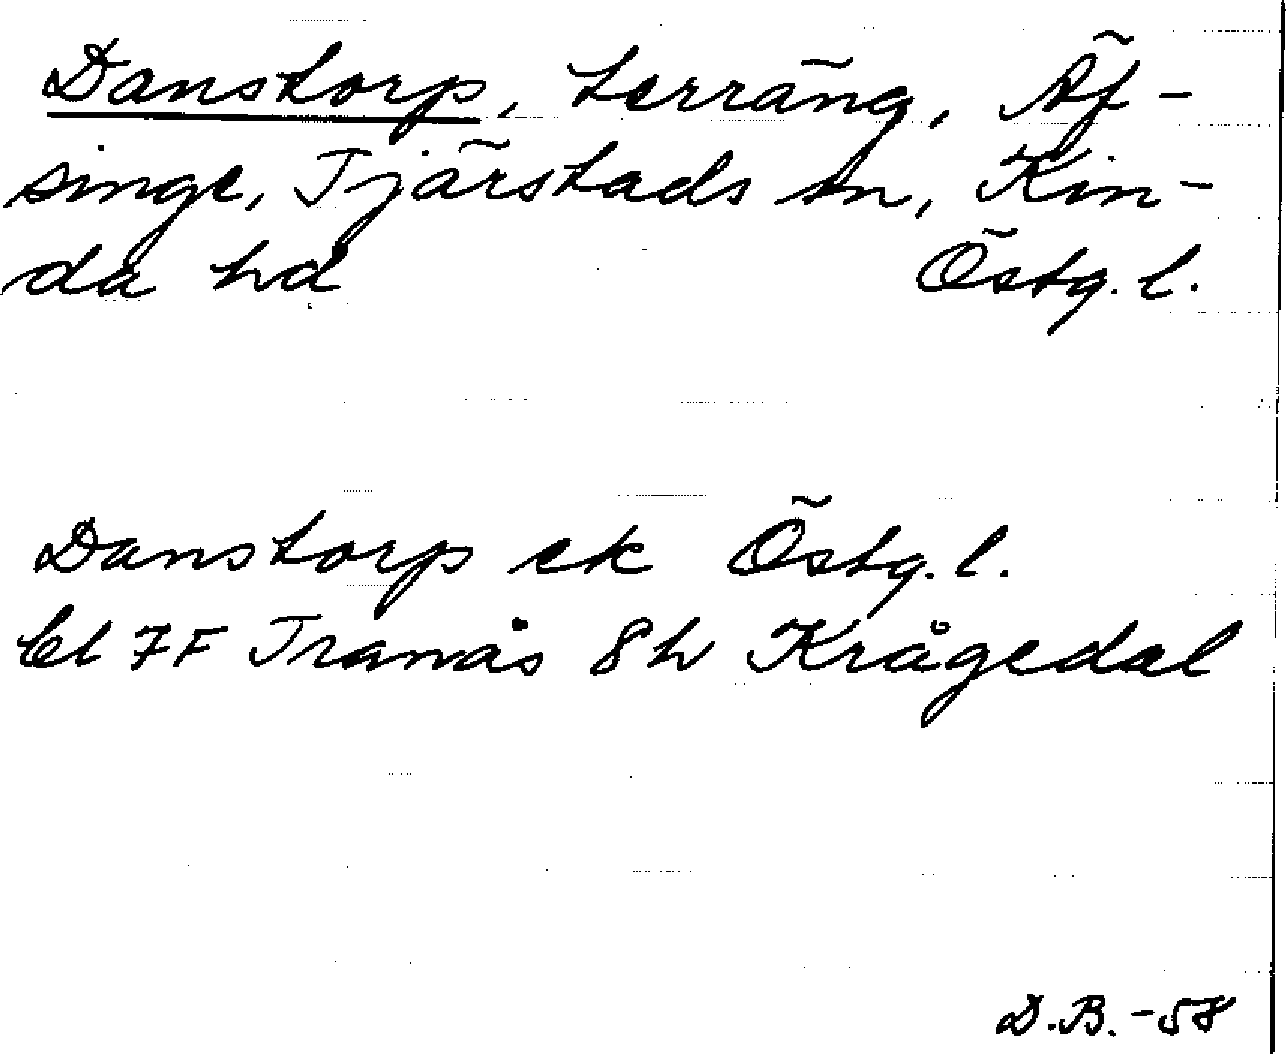 Danstorp, terräng, Äf-
singe, Tjärstads sn, Kin-
da hd Östg. l.
Danstorp ek Östg. l.
bl 7F Tranås 8h Krågedal
D.B. -58